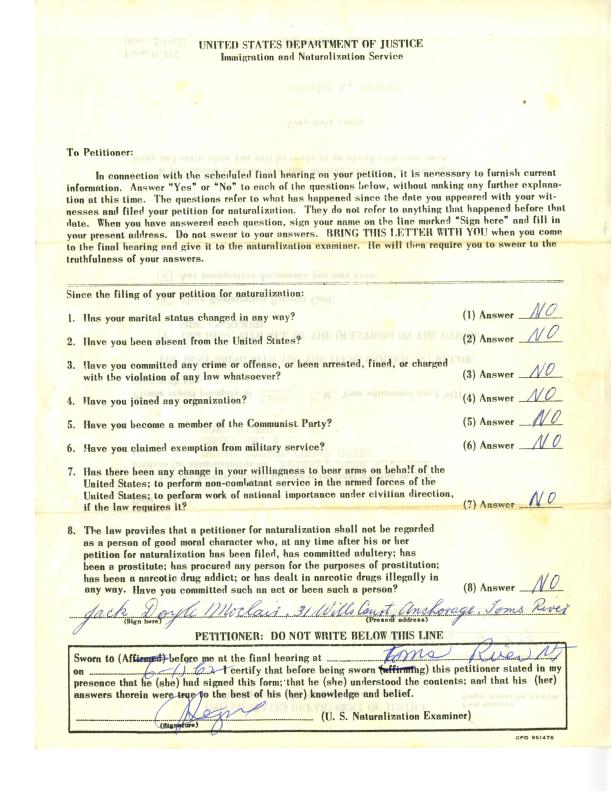 UNITED STATES DEPARTMENT OF JUSTICE
Immigration and Naturalization Service
To Petitioner:
In connection with the scheduled final hearing on your petition, it is necessary to furnish current
information. Answer "Yes" or "No" to each of the questions below, without making any further explana-
tion at this time. The questions refer to what has happened since the date you appeared with your wit-
nesses and filed your petition for naturalization. They do not refer to anything that happened before that
date. When you have answered each question, sign your name on the line marked "Sign here" and fill in
your present address. Do not swear to your answers. BRING THIS LETTER WITH YOU when you come
to the final hearing and give it to the naturalization examiner. He will then require you to swear to the
truthfulness of your answers.
Since the filing of your petition for naturalization:
1. Has your marital status changed in any way? (1) Answer NO
2. Have you been absent from the United States? (2) Answer NO
3. Have you committed any crime or offense, or been arrested, fined, or charged
with the violation of any law whatsoever? (3) Answer NO
4. Have you joined any organization? (4) Answer NO
5. Have you become a member of the Communist Party? (5) Answer NO
6. Have you claimed exemption from military service? (6) Answer NO
7. Has there been any change in your willingness to bear arms on behalf of the
United States; to perform non-combatant service in the armed forces of the
United States; to perform work of national importance under civilian direction,
if the law requires it? (7) Answer NO
8. The law provides that a petitioner for naturalization shall not be regarded
as a person of good moral character who, at any time after his or her
petition for naturalization has been filed, has committed adultery; has
been a prostitute; has procured any person for the purposes of prostitution;
has been a narcotic drug addict; or has dealt in narcotic drugs illegally in
any way. Have you committed such an act or been such a person? (8) Answer NO
Jack Doyle 31 Wills Court, Anchorage, Toms River
(Sign here) (Present address)
PETITIONER: DO NOT WRITE BELOW THIS LINE
Sworn to (Affirmed) before me at the final hearing at Toms River NJ
on 6-1-62 I certify that before being sworn (affirming) this petitioner stated in my
presence that he (she) had signed this form; that he (she) understood the contents; and that his (her)
answers therein were true to the best of his (her) knowledge and belief.
(U. S. Naturalization Examiner)
(Signature)
GPO 961476